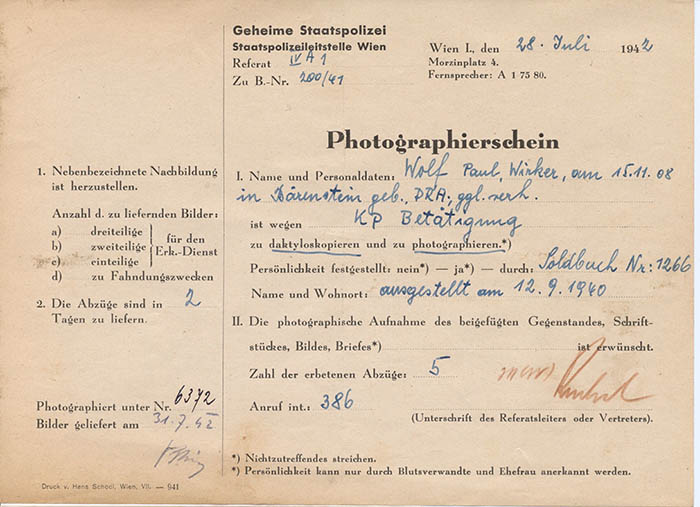 Geheime Staatspolizei
Staatspolizeileitstelle Wien
Referat IV A 1
Zu B.-Nr. 200/41
Wien I., den 28. Juli 1942
Morzinplatz 4.
Fernsprecher: A 1 75 80.
Photographierschein
1. Nebenbezeichnete Nachbildung
ist herzustellen.
Anzahl d. zu liefernden Bilder:
a) dreiteilige
b) zweiteilige
c) einteilige
für den
Erk.-Dienst
d) zu Fahndungszwecken
2. Die Abzüge sind in 2
Tagen zu liefern.
Photographiert unter Nr. 6372
Bilder geliefert am 31.7.42
I. Name und Personaldaten: Wolf Paul, Wirker, am 15.11.08
in Bärenstein geb., DRA, ggl. verh.
ist wegen KP Betätigung
zu daktyloskopieren und zu photographieren.*)
Persönlichkeit festgestellt: nein*) — ja*) — durch: Soldbuch Nr: 1266
Name und Wohnort: ausgestellt am 12.9.1940
II. Die photographische Aufnahme des beigefügten Gegenstandes, Schrift-
stückes, Bildes, Briefes*) ist erwünscht.
Zahl der erbetenen Abzüge: 5
Anruf int.: 386
(Unterschrift des Referatsleiters oder Vertreters).
*) Nichtzutreffendes streichen.
*) Persönlichkeit kann nur durch Blutsverwandte und Ehefrau anerkannt werden.
Druck v. Hans Schödl, Wien, VII. — 941